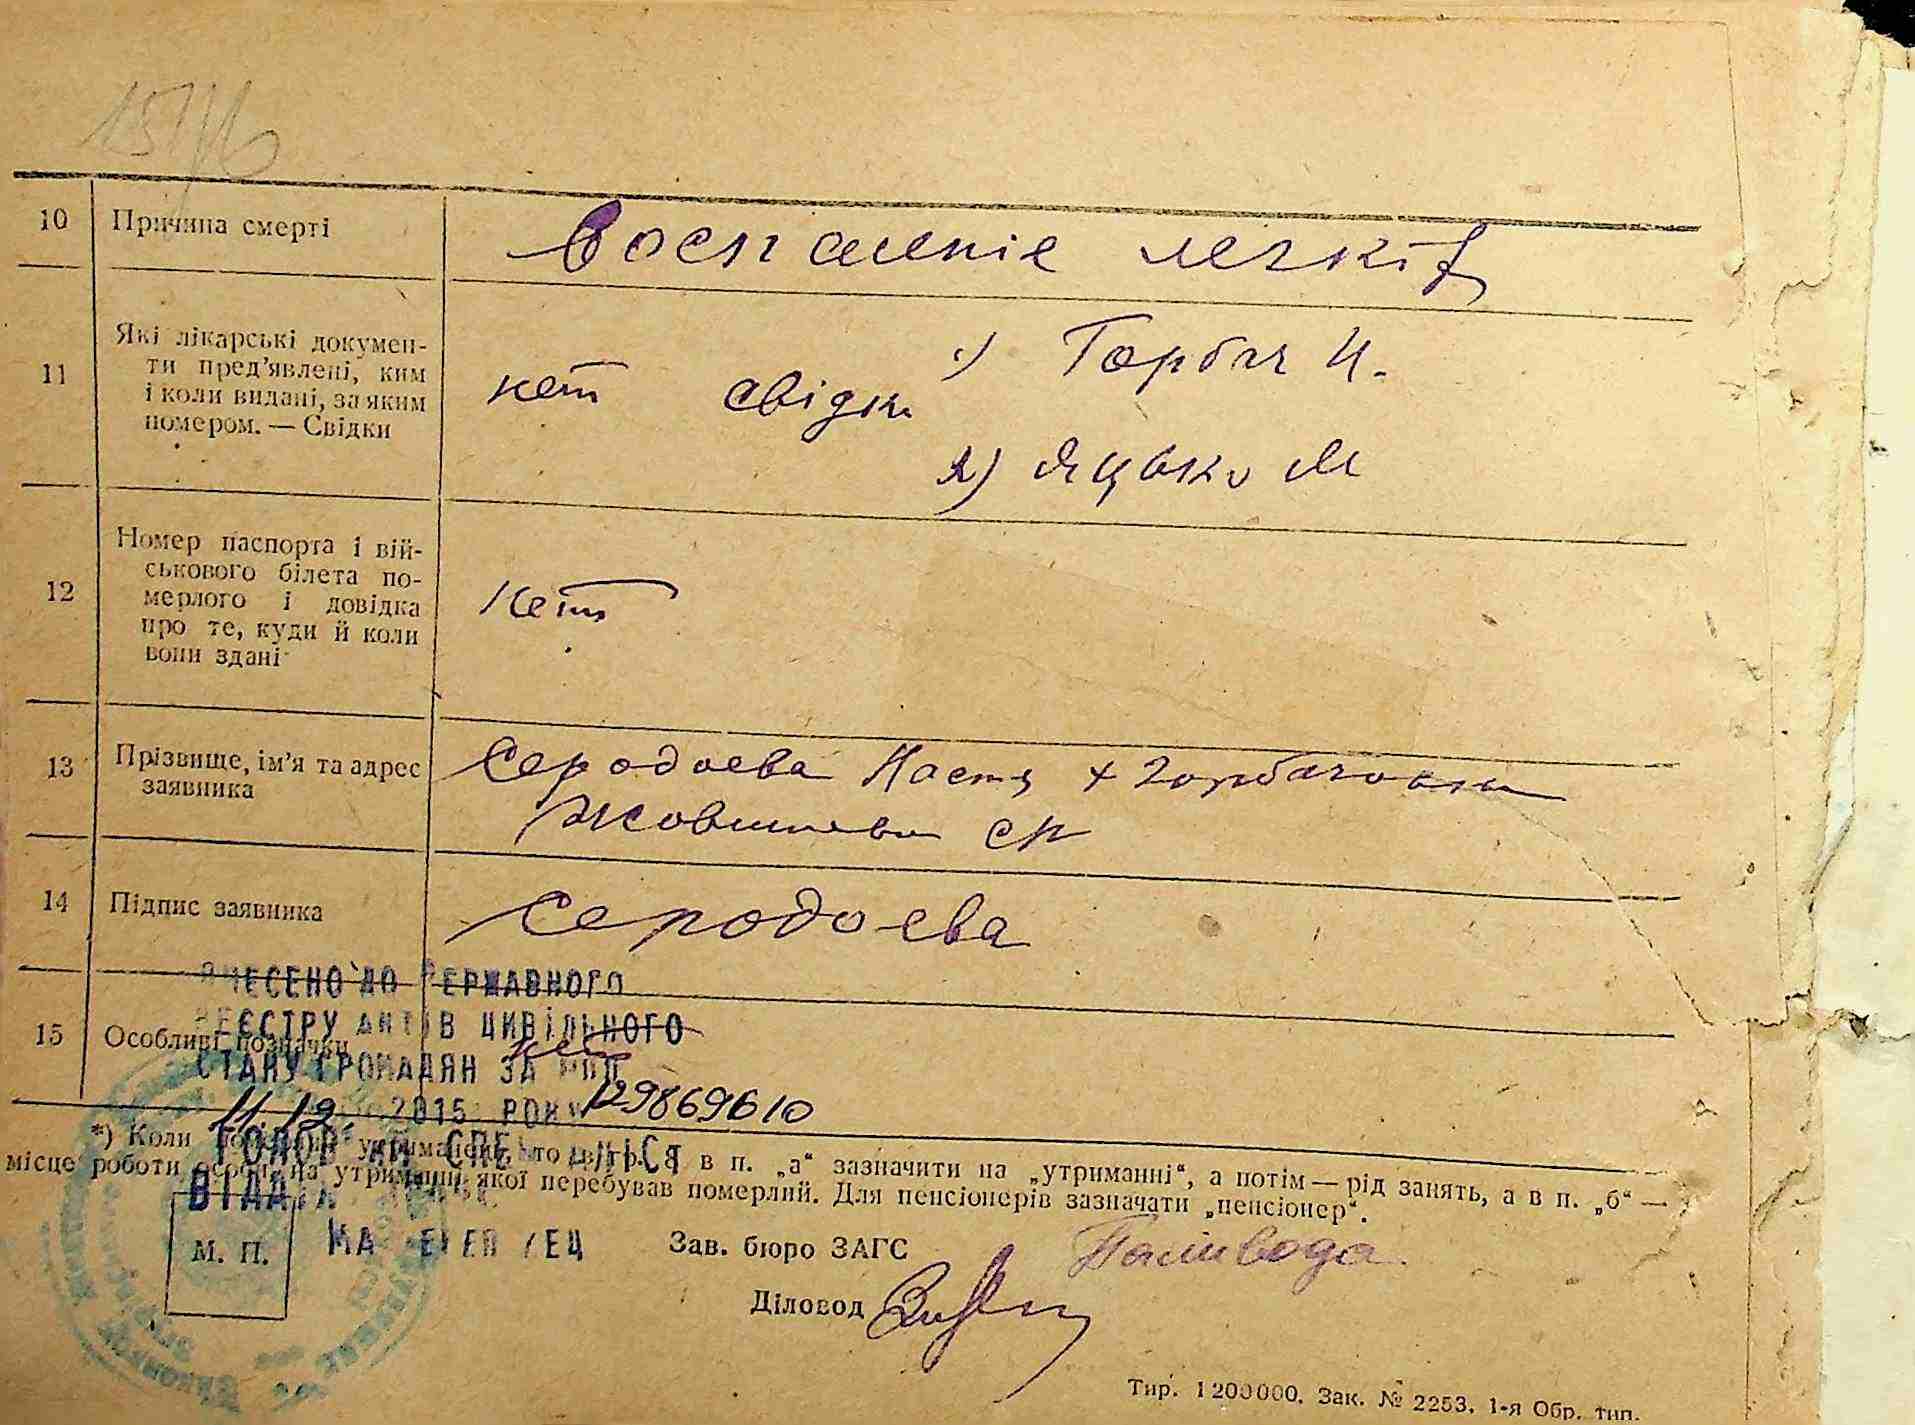 10 Причина смерті Воспаленіе легкіх
11 Які лікарські докумен-
ти пред'явлені, ким
і коли видані, за яким
номером. — Свідки
нет свідки 1) Горбач И.
2) Яцько М
12 Номер паспорта і вій-
ськового білета по-
мерлого і довідка
про те, куди й коли
вони здані
нет
13 Прізвище, ім'я та адрес
заявника
Серодоева Настя х Горбачовки
Жовтнева ср
14 Підпис заявника Серодоева
ВНЕСЕНО ДО ДЕРЖАВНОГО
РЕЄСТРУ АКТІВ ЦИВІЛЬНОГО
15 Особливі позначки нет
СТАНУ ГРОМАДЯН ЗА
11 12 2015 РОКУ 129869610
*) Коли утриманець, то в гр. в п. „а“ зазначити на „утриманні“, а потім — рід занять, а в п. „б“ —
місце роботи особи, на утриманні якої перебував померлий. Для пенсіонерів зазначати „пенсіонер“.
ГОЛОВНИЙ СПЕЦІАЛІСТ
ВІДДІЛУ
М. П.
Зав. бюро ЗАГС Паливода
Діловод
Тир. 1200000. Зак. № 2253. 1-я Обр. тип.